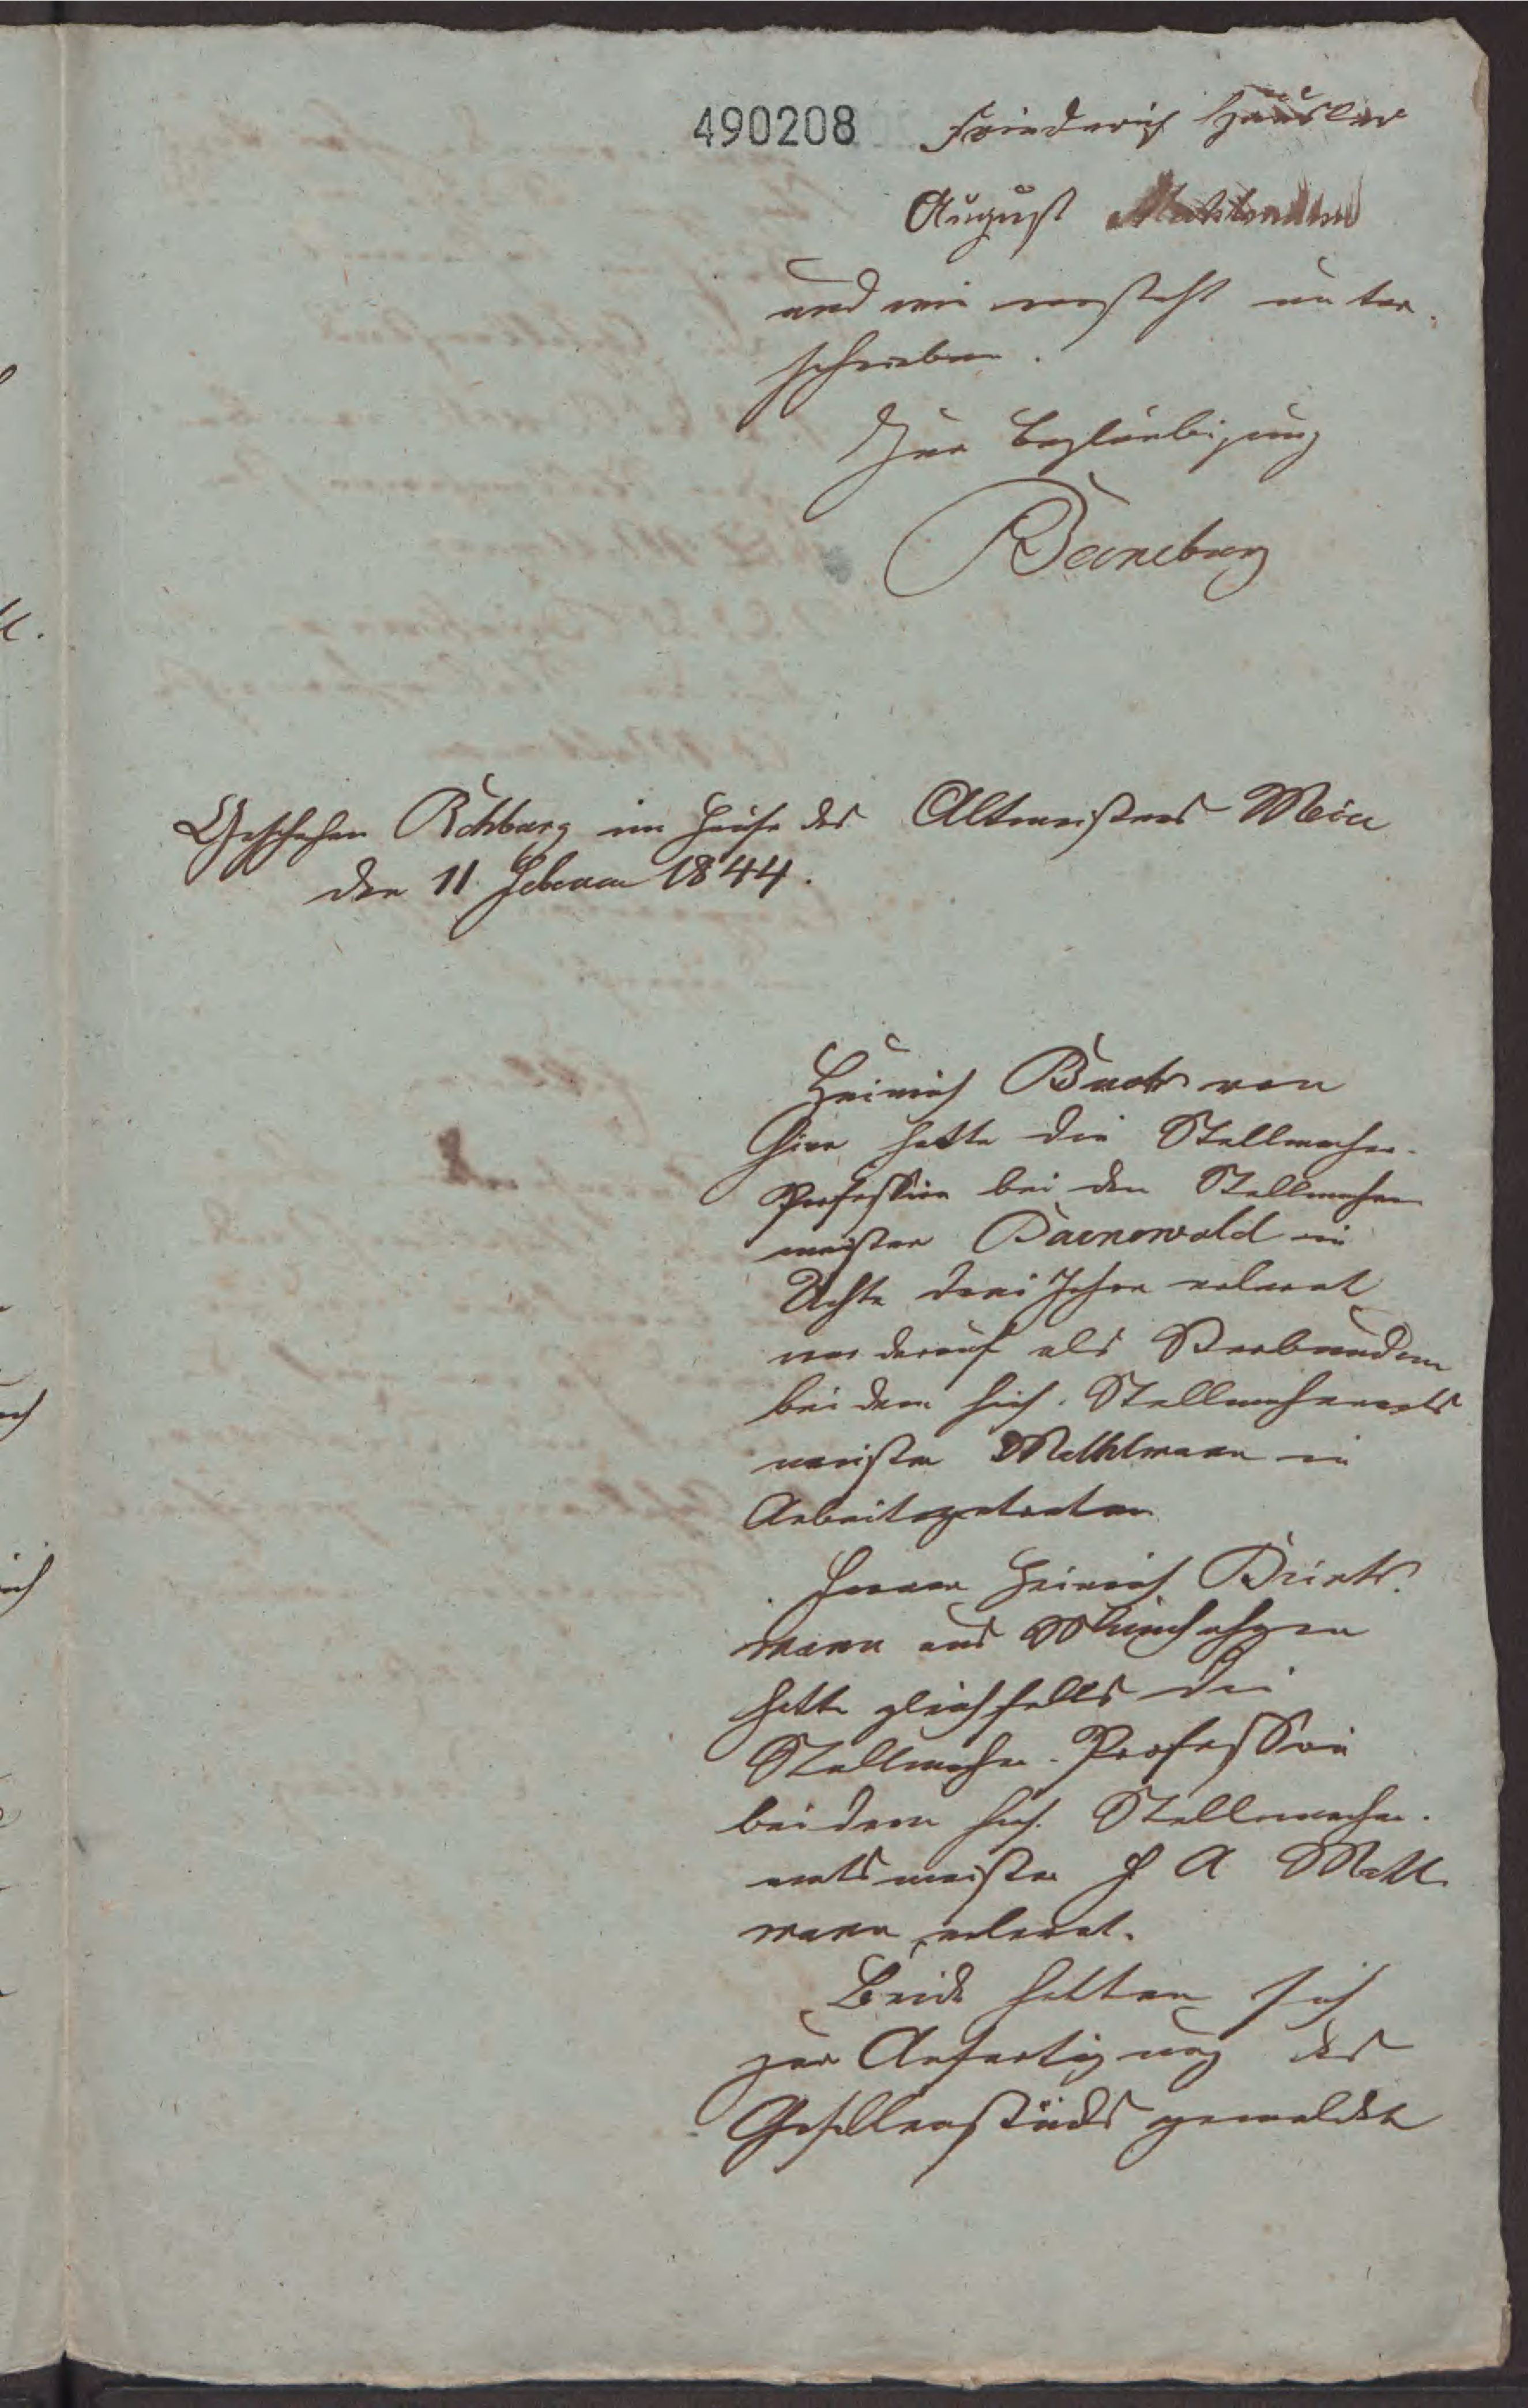 490208
Friederich Häusler
August
und wie vorsteht unter-
schrieben.
Zur Beglaubigung
Geschehen Rehburg im Hause des Altmeisters Meier
den 11 Februar 1844.
Heinrich von
hier hatte die Stellmacher-
Profession bei den Stellmacher
meister in
Uchte drei Jahre erlernt
war darauf als
bei dem hies. Stellmacheramts
meister Mehlmann in
Arbeit getreten
Ferner Heinrich
mann aus Münchehagen
hatte gleichfalls die
Stellmacher-Profession
bei dem hies. Stellmacher-
amtsmeister F A
mann erlernt.
Beide hatten sich
zur Anfertigung des
Gesellenstücks gemeldet